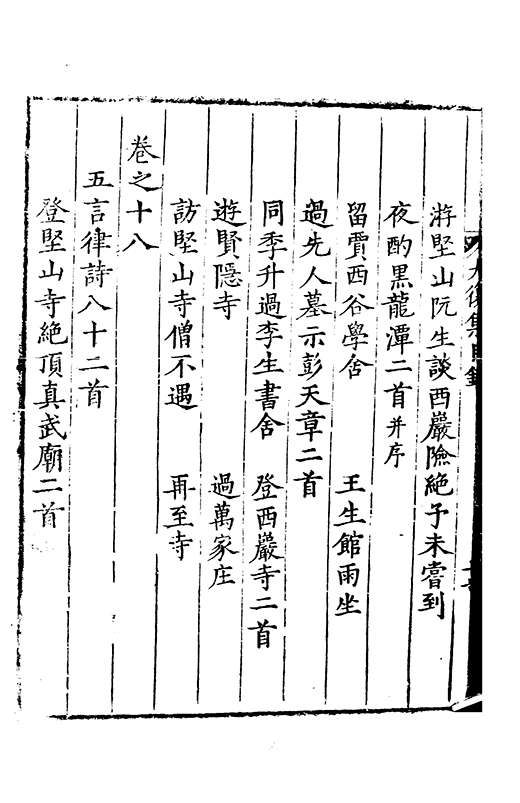 游堅山阮生談西巖險絕予未嘗到
夜酌黑龍潭二首并序
留賈西谷學舍　王生館雨坐
過先人墓示彭天章二首
同季升過李生書舍　登西巖寺二首
遊賢隱寺　過萬家庄
訪堅山寺僧不遇　再至寺
卷之十八
五言律詩八十二首
登堅山寺絕頂真武廟二首